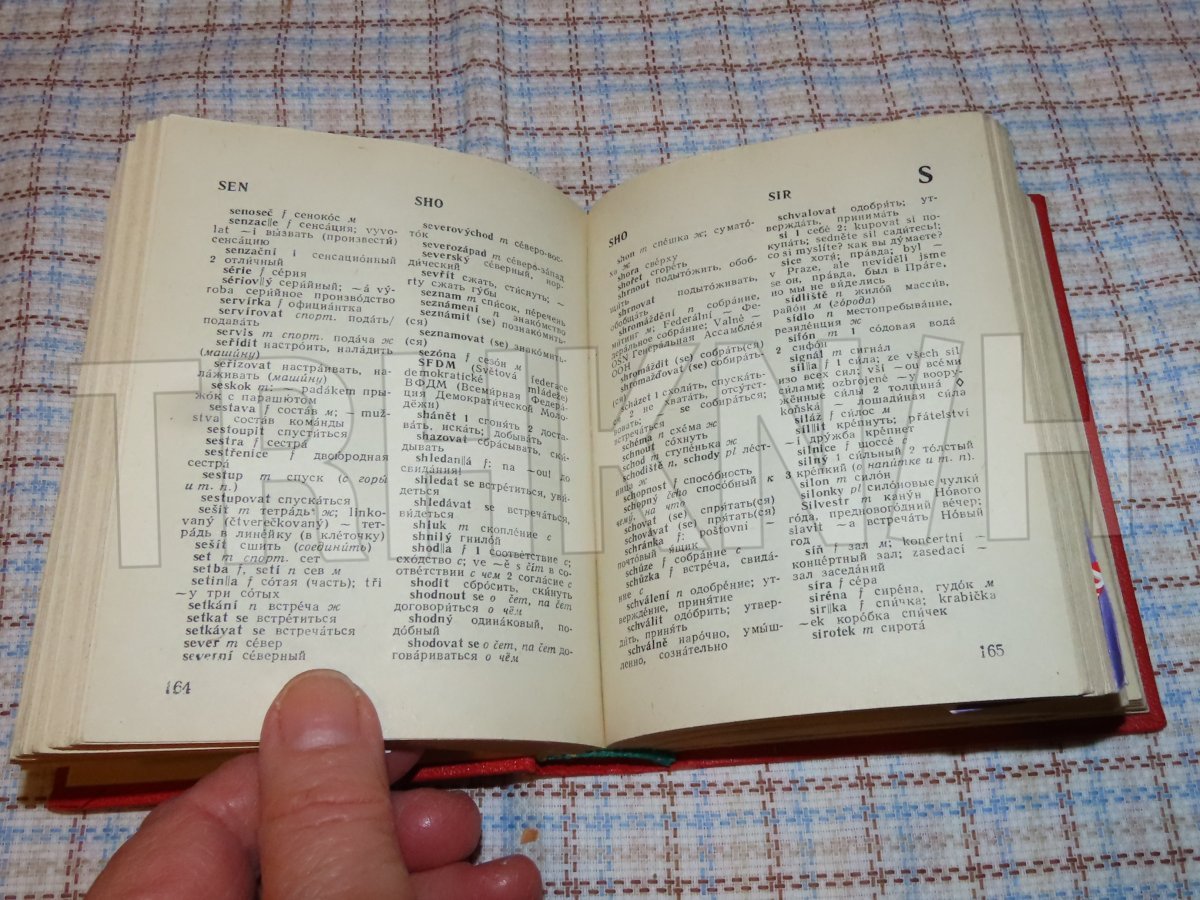 SEN
SHO
senoseč f сенокóс м
senzac||e f сенсáция; vyvo-
lat ~i вы́звать (произвести́)
сенсáцию
senzační 1 сенсациóнный
2 отли́чный
série f сéрия
sériov||ý сери́йный; ~á vý-
roba сери́йное произвóдство
servírka f официáнтка
servírovat спорт. подáть/
подавáть
servis m спорт. подáча ж
seřídit настрóить, налáдить
(маши́ну)
seřizovat настрáивать, на-
лáживать (маши́ну)
seskok m: ~ padákem пры-
жóк с парашю́том
sestava f состáв м; ~ muž-
stva состáв комáнды
sestoupit спусти́ться
sestra f сестрá
sestřenice f двою́родная
сестрá
sestup m спуск (с горы́
и т. п.)
sestupovat спускáться
sešit m тетрáдь ж; linko-
vaný (čtverečkovaný) ~ тет-
рáдь в линéйку (в клéточку)
sešít сшить (соедини́ть)
set m спорт. сет
setba f, setí n сев м
setin||a f сóтая (часть); tři
~y три сóтых
setkání n встрéча ж
setkat se встрéтиться
setkávat se встречáться
sever m сéвер
severní сéверный
severovýchod m сéверо-вос-
тóк
severozápad m сéверо-зáпад
severský сéверный, нор-
ди́ческий
sevřít сжать, сти́снуть; ~
rty сжать гýбы
seznam m спи́сок, пéречень
seznámení n знакóмство
seznámit (se) познакóмить-
(ся)
seznamovat (se) знакóмить-
(ся)
sezóna f сезóн м
SFDM (Světová federace
demokratické mládeže)
ВФДМ (Всеми́рная Федерá-
ция Демократи́ческой Моло-
дёжи)
shánět 1 сгоня́ть 2 доста-
вáть, искáть; добывáть
shazovat сбрáсывать, ски́-
дывать
shledan||á f: na ~ou! до
свидáния!
shledat se встрéтиться, уви́-
деться
shledávat se встречáться,
ви́деться
shluk m скоплéние с
shnilý гнилóй
shod||a f 1 соотвéтствие с;
схóдство с; ve ~ě s čím в со-
отвéтствии с чем 2 соглáсие с
shodit сбрóсить, ски́нуть
shodnout se o čem, na čem
договори́ться о чём
shodný одинáковый, по-
дóбный
shodovat se o čem, na čem до-
говáриваться о чём
164
SHO
SIR
S
shon m спéшка ж; суматó-
ха ж
shora свéрху
shořet сгорéть
shrnout подытóжить, обоб-
щи́ть
shrnovat подытóживать,
обобщáть
shromáždění n собрáние,
ми́тинг м; Federální ~ Фе-
дерáльное собрáние; Valné ~
OSN Генерáльная Ассамблéя
ООН
shromáždit (se) собрáть(ся)
shromažďovat (se) собирáть-
(ся)
scházet 1 сходи́ть, спускáть-
ся 2 не хватáть, отсýтст-
вовать; ~ se собирáться;
встречáться
schéma n схéма ж
schnout сóхнуть
schod m ступéнька ж
schodiště n, schody pl лéст-
ница ж
schopnost f спосóбность
schopný čeho спосóбный к
чемý, на что
schovat (se) спря́тать(ся)
schovávat (se) пря́тать(ся)
schránka f: poštovní ~
почтóвый я́щик
schůze f собрáние с
schůzka f встрéча, свидá-
ние с
schválení n одобрéние; ут-
верждéние, приня́тие
schválit одóбрить; утвер-
ди́ть, приня́ть
schválně нарóчно, умы́ш-
ленно, сознáтельно
schvalovat одобря́ть; ут-
верждáть, принимáть
si 1 себé 2: kupovat si по-
купáть; sedněte si! сади́тесь!;
co si myslíte? как вы дýмаете?
sice хотя́; прáвда; byl ~
v Praze, ale neviděli jsme
se он, прáвда, был в Прáге,
но мы не ви́делись
sídliště n жилóй масси́в,
райóн м (гóрода)
sídlo n местопребывáние,
резидéнция ж
sifón m 1 сóдовая водá
2 сифóн
signál m сигнáл
síl||a f 1 си́ла; ze všech sil
изо всех сил; vší ~ou всéми
си́лами; ozbrojené ~y воору-
жённые си́лы 2 толщинá ◊
koňská ~ лошади́ная си́ла
siláž f си́лос м
síl||it крéпнуть; přátelství
~í дрýжба крéпнет
silnice f шоссé с
silný 1 си́льный 2 тóлстый
3 крéпкий (о напи́тке и т. п.)
silon m силóн
silonky pl силóновые чулки́
Silvestr m канýн Нóвого
гóда, предновогóдний вéчер;
slavit ~a встречáть Нóвый
год
síň f зал м; koncertní ~
концéртный зал; zasedací ~
зал заседáний
síra f сéра
siréna f сирéна, гудóк м
sir||ka f спи́чка; krabička
~ek корóбка спи́чек
sirotek m сиротá
165